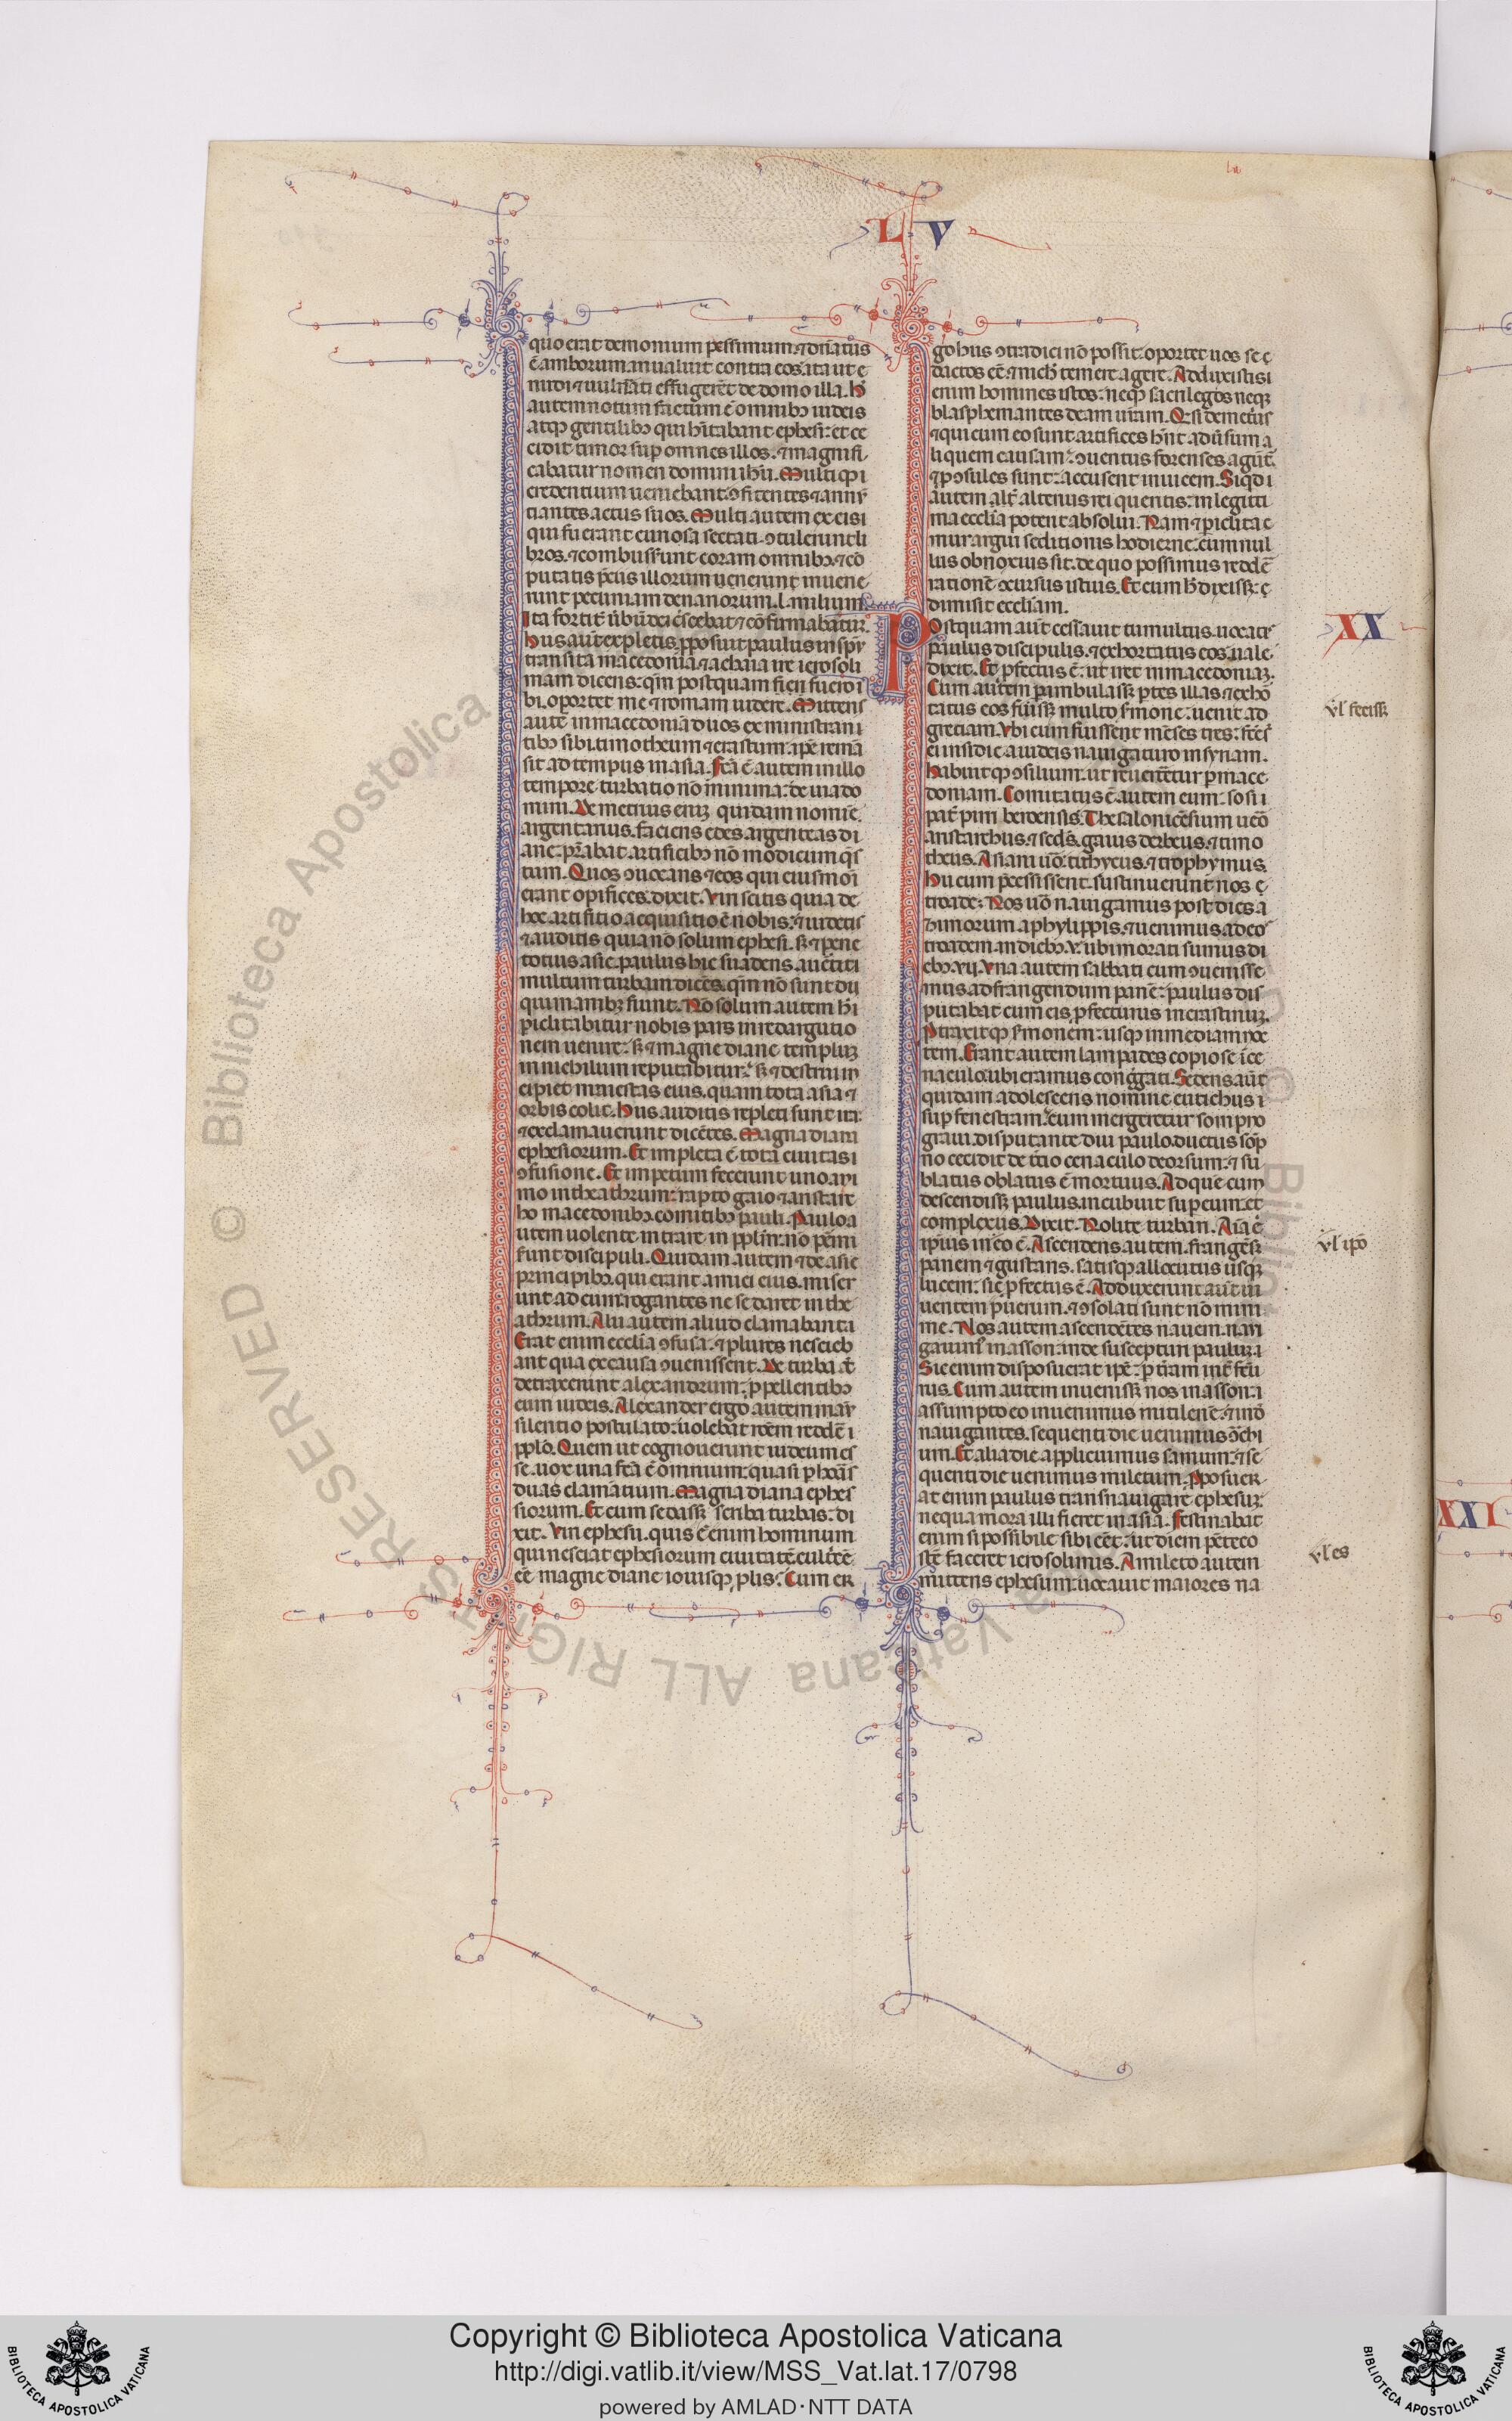 L V
quo erat demonium pessimum. ⁊ dn̄atus
ē amborum inualuit contra eos. ita ut e
nudi ⁊ uulnati effugerēt de domo illa. h̄
autem notum factum ē omnibꝫ iudeis
atqꝫ gentilibꝫ qui hītabant ephesi: et ce
cidit timor suꝑ omnes illos. ⁊ magnifi
cabatur nomen domini ihū. Multi qꝫ
credentium ueniebant ꝯfitentes ⁊ annū
tiantes actus suos. Multi autem ex eis
qui fuerant curiosa sectati. ꝯtulerunt li
bros. ⁊ combusserunt coram omnibꝫ. ⁊ cō
putatis p̄ciis illorum uenerunt inuene
runt pecuniam denariorum .l. milium
Ita fortit̄ ūbū dei c̄scebat ⁊ cōfirmabatur.
Hiis aut̄ expletis. ꝓposuit paulus in spū
transita macedonia ⁊ achaia ire ierosoli
mam dicens: qm̄ postquam fieri fuero i
bi. oportet me ⁊ romam uidere. Mittens
autē in macedoniā duos ex ministranti
tibꝫ sibi. timotheum ⁊ erastum. ip̄e remā
sit ad tempus in asia. Fc̄a ē autem in illo
tempore turbatio nō minima: de uia do
mini. Demetrius eniꝫ quidam nomīe.
argentarius. faciens edes argenteas di
ane: p̄stabat artificibꝫ nō modicum q̄s
tum. Quos ꝯuocans ⁊ eos qui eiusmoi
erant opifices. dixit. Viri scitis quia de
hoc artifitio acquisitio ē nobis: ⁊ uidetis
⁊ auditis quia nō solum ephesi. sꝫ ⁊ pene
totius asie. paulus hic suadens. auertit
multum turbam dicēs. qm̄ nō sunt dii
qui manibꝫ fiunt. Nō solum autem h̄
ꝑiclitabitur nobis pars in redargutio
nem uenire: sꝫ ⁊ magne diane templuꝫ
in nichilum reputabitur: sꝫ ⁊ destrui in
cipiet maiestas eius. quam tota asia ⁊
orbis colit. Hiis auditis repleti sunt ira:
⁊ exclamauerunt dicētes. Magna diana
ephesiorum. Et impleta ē tota ciuitas
ꝯfusione. Et impetum fecerunt uno ani
mo in theathrum: rapto gaio ⁊ aristarc
ho macedonibꝫ. comitibꝫ pauli. Paulo a
utem uolente intrare in ppl̄m: nō ꝑmi
serunt discipuli. Quidam autem ⁊ de asie
principibꝫ. qui erant amici eius. miser
unt ad eum: rogantes ne se daret in the
athrum. Alii autem aliud clamabant
Erat enim ecclīa ꝯfusa: ⁊ plures nescieb
ant qua ex causa ꝯuenissent. De turba aut̄
detraxerunt alexandrum: ꝓpellentibꝫ
eum iudeis. Alexander ergo autem manū
silentio postulato: uolebat rōem reddē
pplō. Quem ut cognouerunt iudeum es
se. uox una fc̄a ē omnium: quasi ꝑ horas
duas clamātium. Magna diana ephes
siorum. Et cum sedasset scriba turbas: di
xit. Viri ephesii. quis ē enim hominum
qui nesciat ephesiorum ciuitatē cultrēē
ēē magne diane iouisqꝫ plis? Cum er
go hiis ꝯtradici nō possit: oportet uos se
datos eē: ⁊ nich̄ temere agere. Adduxistis
enim homines istos: neqꝫ sacrilegos neqꝫ
blasphemantes deam ur̄am. Q si demetrius
⁊ qui cum eo sunt artifices hn̄t aduersum a
liquem causam: ꝯuentus forenses agūt.
⁊ ꝓꝯsules sunt: accusent inuicem. Si qd
autem alt̄ alterius rei queritis: in legitti
ma ecclīa poterit absolui. Nam ⁊ ꝑiclita
mur argui seditionis hodierne: cum nul
lus obnoxius sit. de quo possimus reddē
rationē ꝯcursus istius. Et cum h̄ dixissꝫ:
dimisit eccliam.
Postquam aut̄ cessauit tumultus. uocatis
paulus discipulis. ⁊ exhortatus eos: uale
dixit. Et ꝓfectus ē: ut iret in macedoniaꝫ.
Cum autem ꝑambulassꝫ ꝑtes illas ⁊ exhor
tatus eos fuissꝫ multo s̄mone: uenit ad
greciam. Vbi cum fuissent mēses tres: fc̄e s̄
ei insidie a iudeis nauigaturo in syriam.
Habuitqꝫ ꝯsilium: ut reuerteretur ꝑ mace
doniam. Comitatus ē autem eum: sosi
pat̄ pirri beroensis. Thesalonicēsium uero
aristarchus. ⁊ secūs. gaius derbeus. ⁊ timo
theus. Asiani uō: tithycus. ⁊ trophymus.
Hii cum p̄cessissent. sustinuerunt nos
troade: Nos uō nauigamus post dies a
ꝫimorum a phylippis. ⁊ uenimus ad eos
troadem in diebꝫ .v. ubi morati sumus di
ebꝫ .vii. Vna autem sabbati cum ꝯuenisse
mus ad frangendum panē: paulus dis
putabat cum eis. ꝓfecturus in crastinuꝫ.
Ptraxitqꝫ s̄monem: usqꝫ in mediam noc
tem. Erant autem lampades copiose ī ce
naculo: ubi eramus congregati. Sedens aut̄
quidam adolescens nomine eutichus
suꝑ fenestram: cum mergeretur sompno
graui. disputante diu paulo. ductus sōp
no cecidit de t̄cio cenaculo deorsum: ⁊ su
blatus oblatus ē mortuus. Ad que cum
descendissꝫ paulus. incubuit suꝑ eum: et
complexus. Dixit. Nolite turbari. Aīa ē
ipsius in eo ē. Ascendens autem. frangēsqꝫ
panem ⁊ gustans. satisqꝫ allocutus usqꝫ
lucem: sic ꝓfectus ē. Adduxerunt aut̄ ui
uentem puerum. ⁊ ꝯsolati sunt nō mini
me. Nos autem ascendētes nauem. naui
gauim᷒ in asson: inde suscepturi pauluꝫ
Sic enim disposuerat ip̄e: ꝑ tr̄am iter factu
rus. Cum autem inuenissꝫ nos in asson:
assumpto eo inuenimus mitilenē. ⁊ inde
nauigantes. sequenti die uenimus ꝯ̄ chi
um. Et alia die applicuimus samum: ⁊ se
quenti die uenimus miletum. Pposuer
at enim paulus transnauigare ephesuꝫ:
ne qua mora illi fieret in asia. Festinabat
enim si possibile sibi eēt: ut diem pēteco
stē faceret ierosolimis. A mileto autem
mittens ephesum: uocauit maiores na
XX
vl̄ fecissꝫ
vl̄ ipō
vl̄ es
XXI
Copyright © Biblioteca Apostolica Vaticana
http://digi.vatlib.it/view/MSS_Vat.lat.17/0798
powered by AMLAD·NTT DATA
BIBLIOTECA APOSTOLICA VATICANA
BIBLIOTECA APOSTOLICA VATICANA